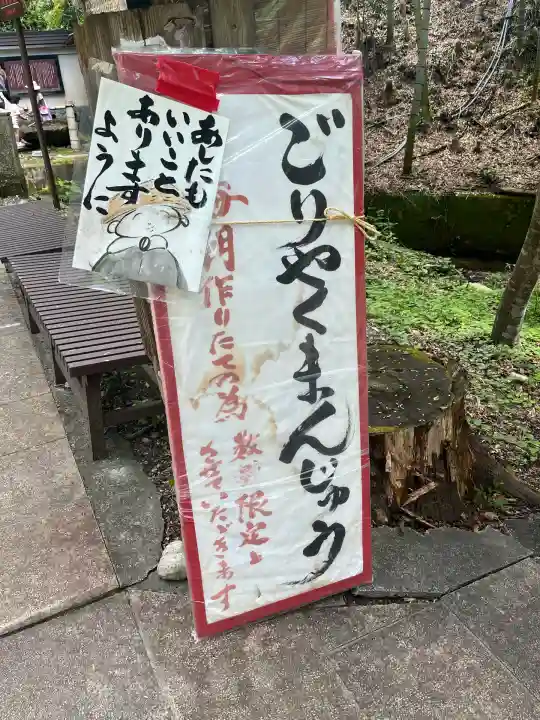 ごりやくまんじゅう
毎朝作りたての為
数量限定と
させていただきます
あしたも
いいこと
あります
ように